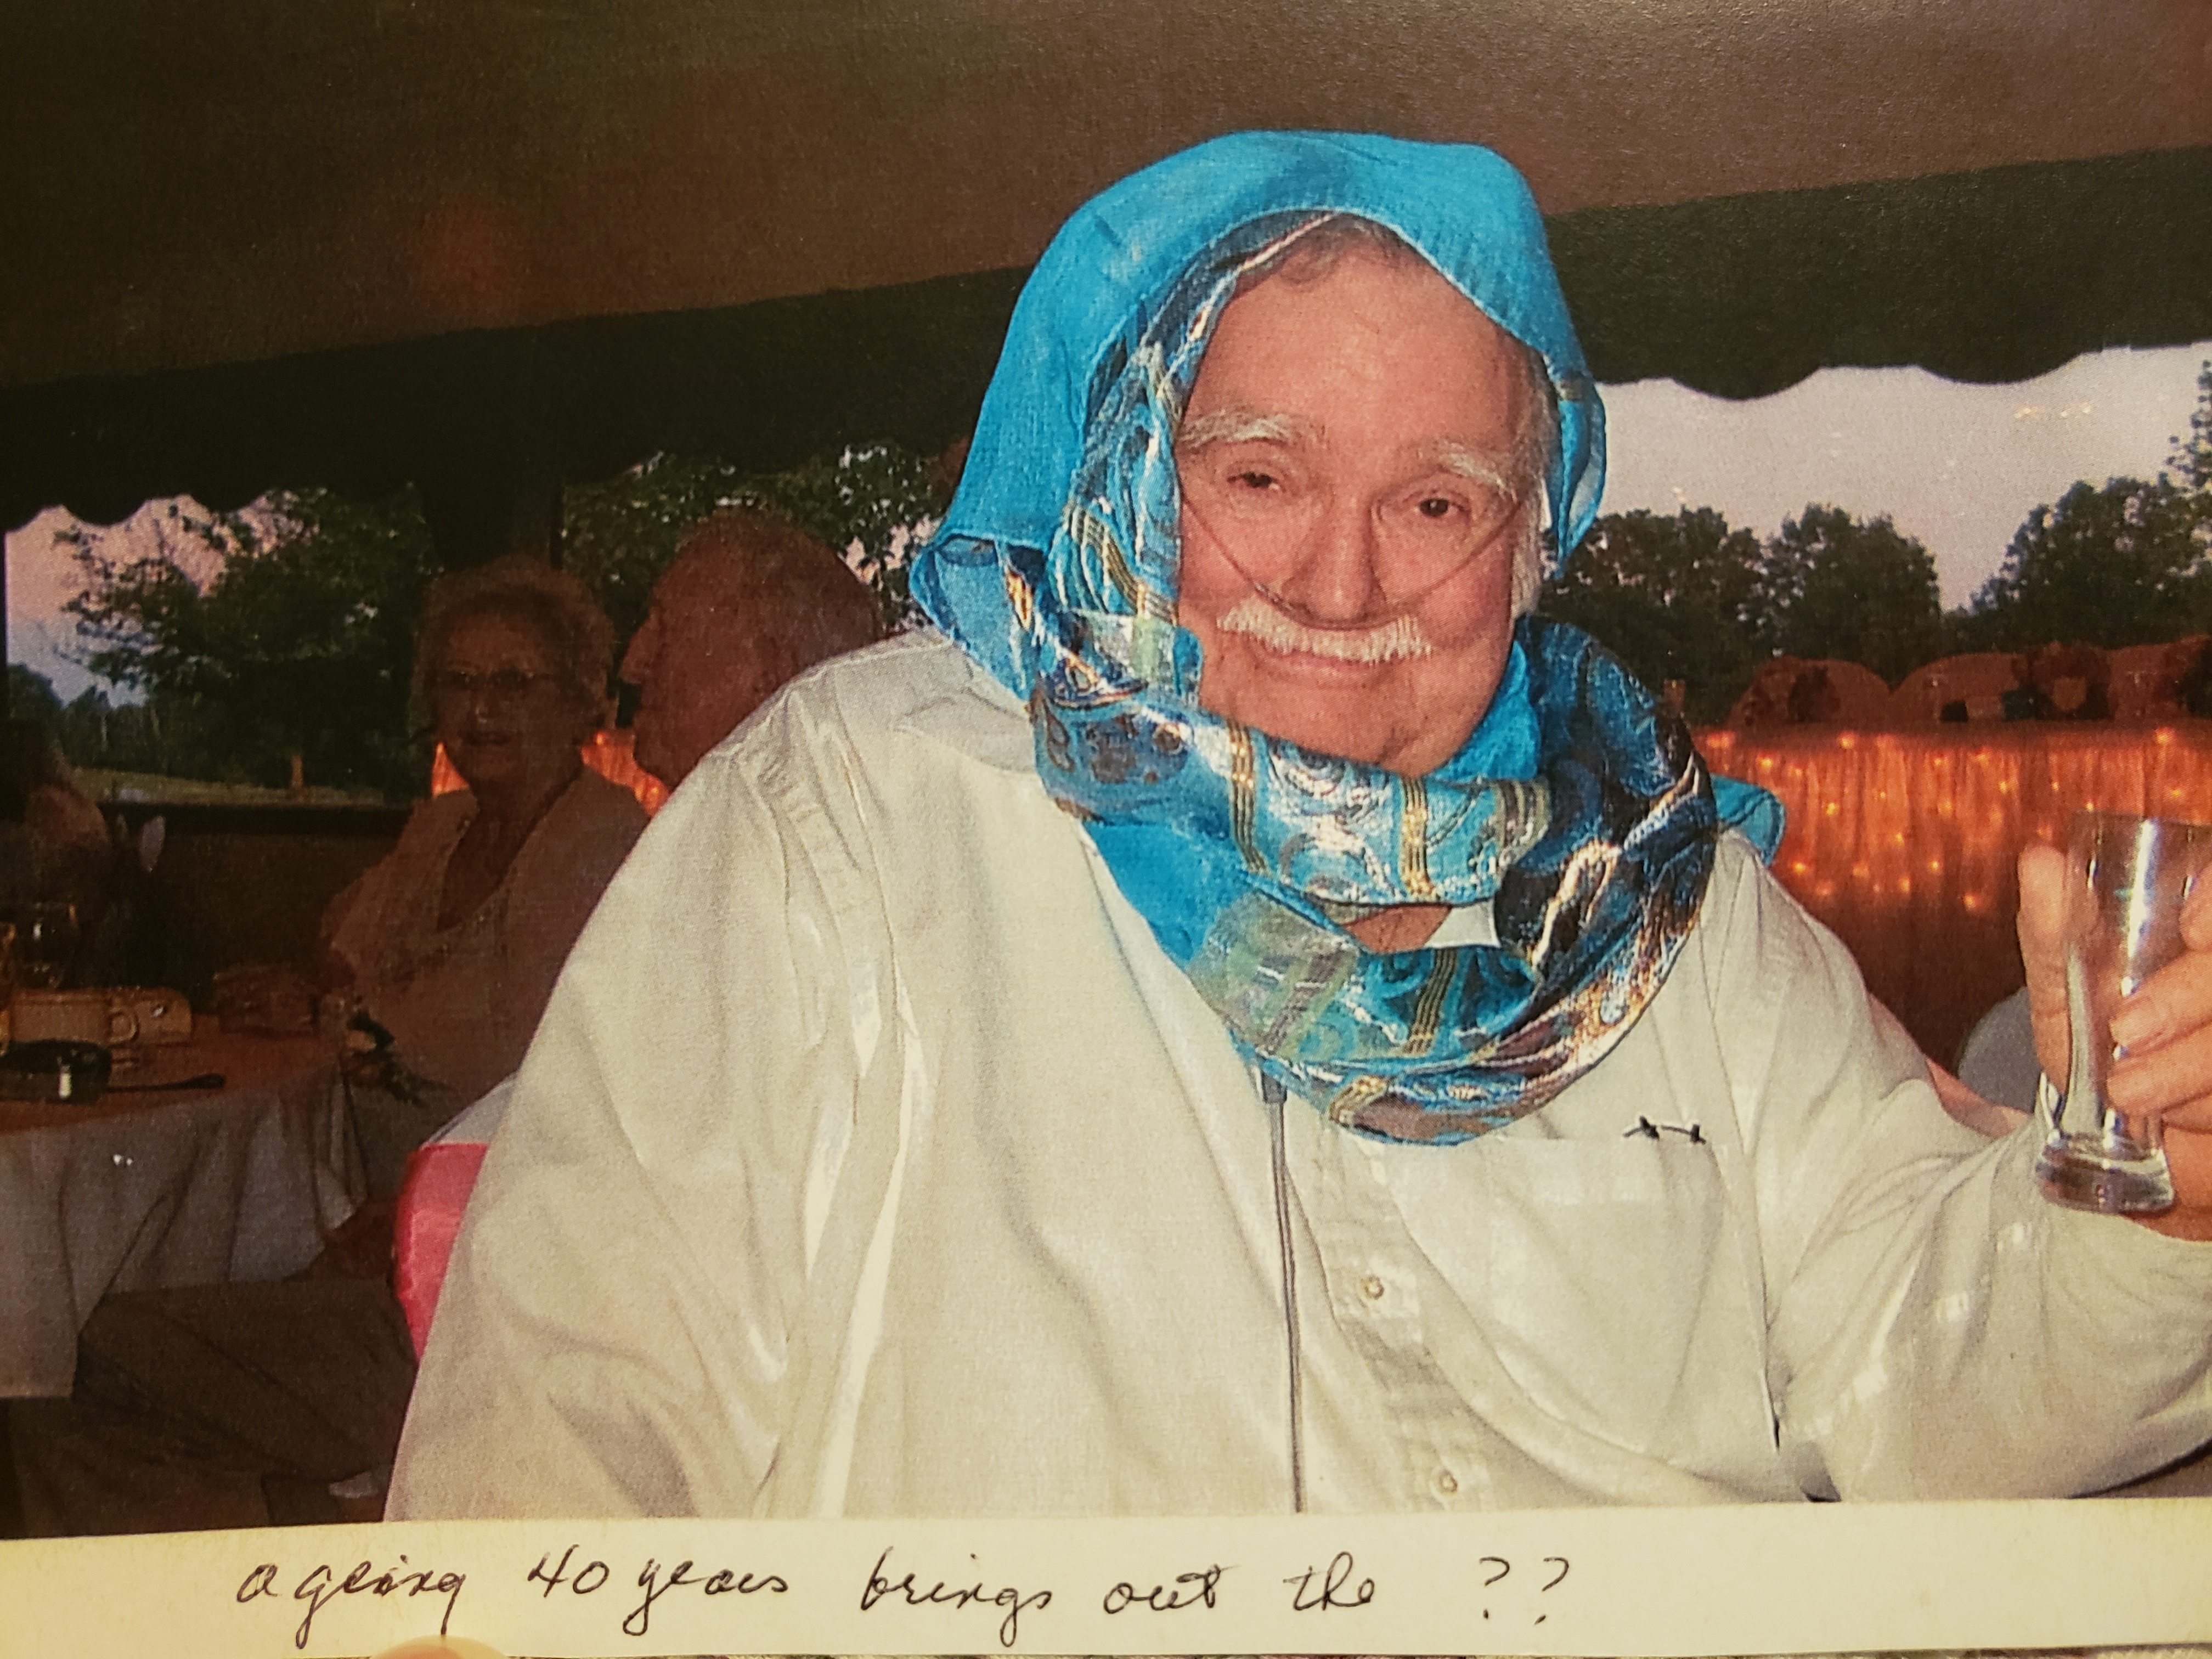 ageing 40 years brings out the ??